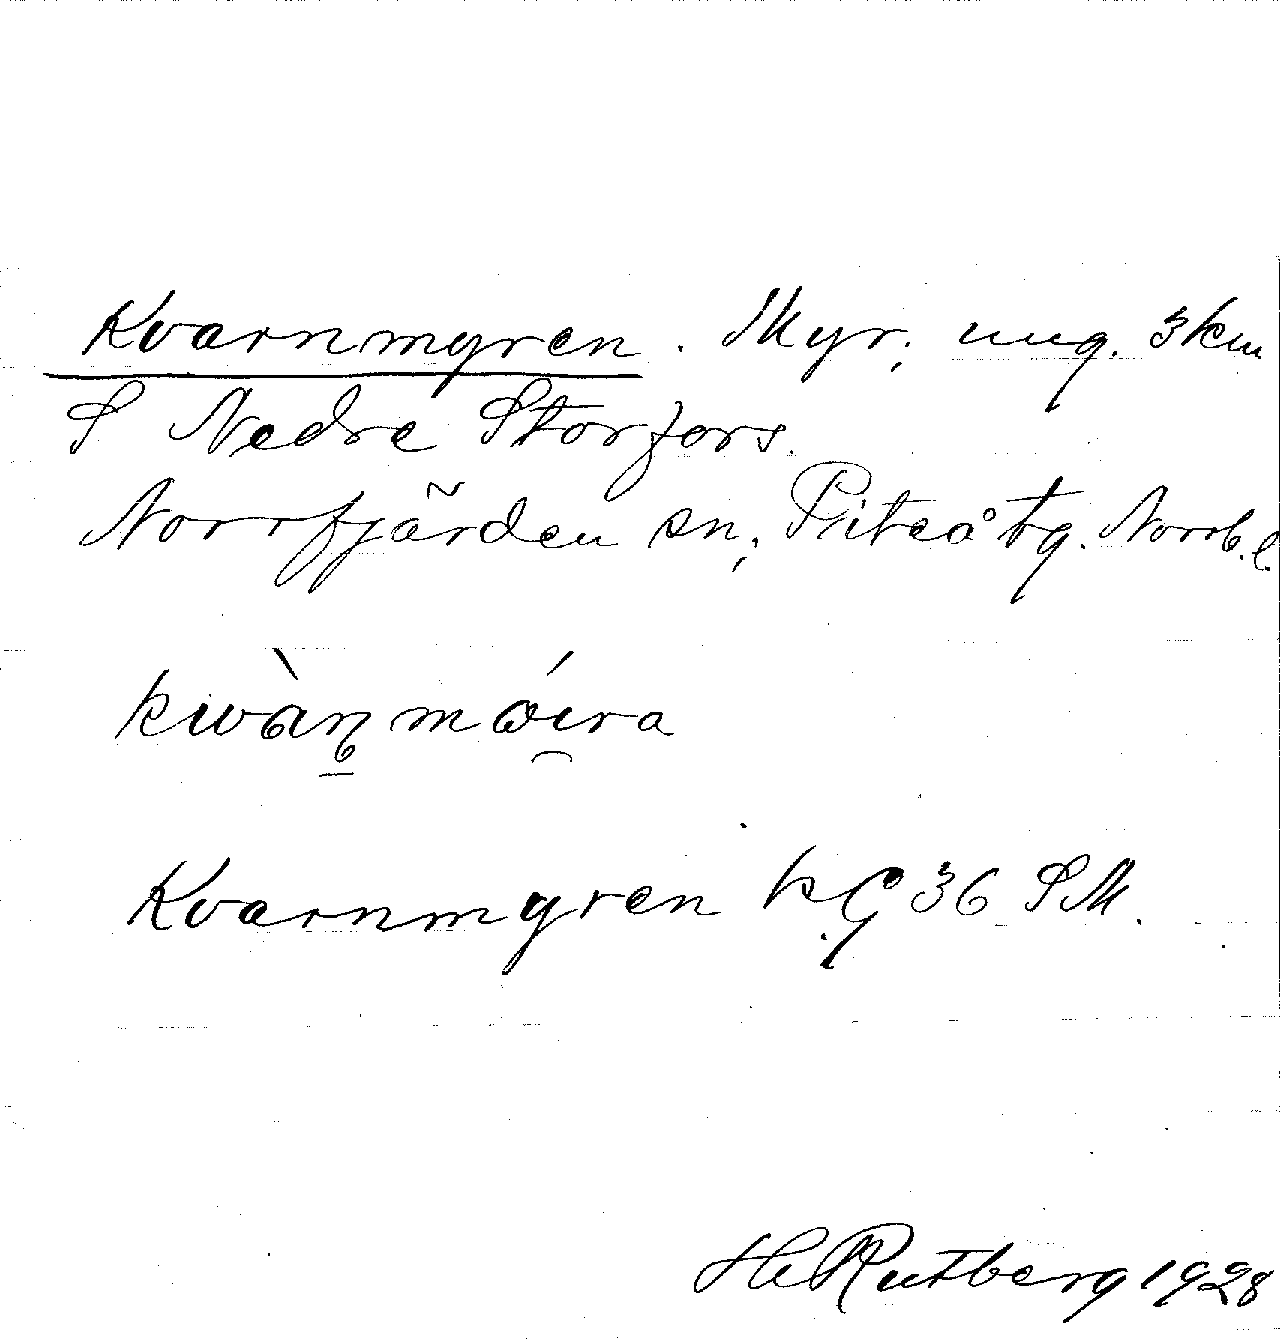 Kvarnmyren. Myr, ung. 3 km
S Nedre Storfors.
Norrfjärden sn, Piteå tg. Norrb. l.
kwàṇmɷ́ira
Kvarnmyren kG 36 SM.
H Rutberg 1928